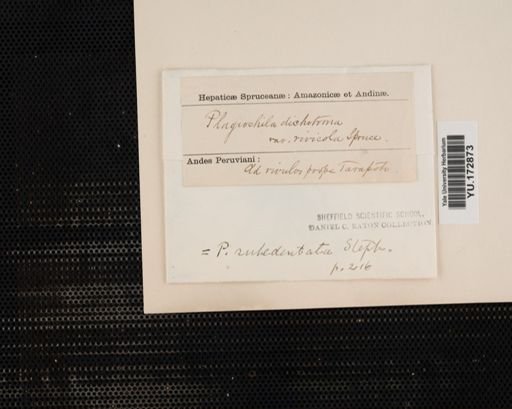 Hepaticæ Spruceanæ: Amazonicæ et Andinæ.
Plagiochila dichotoma
var. rivicola Spruce.
Andes Peruviani:
Ad rivulos prope Tarapoto.
SHEFFIELD SCIENTIFIC SCHOOL,
DANIEL C. EATON COLLECTION
= P. subedentata Steph.
p. 216
Yale University Herbarium
YU.172873